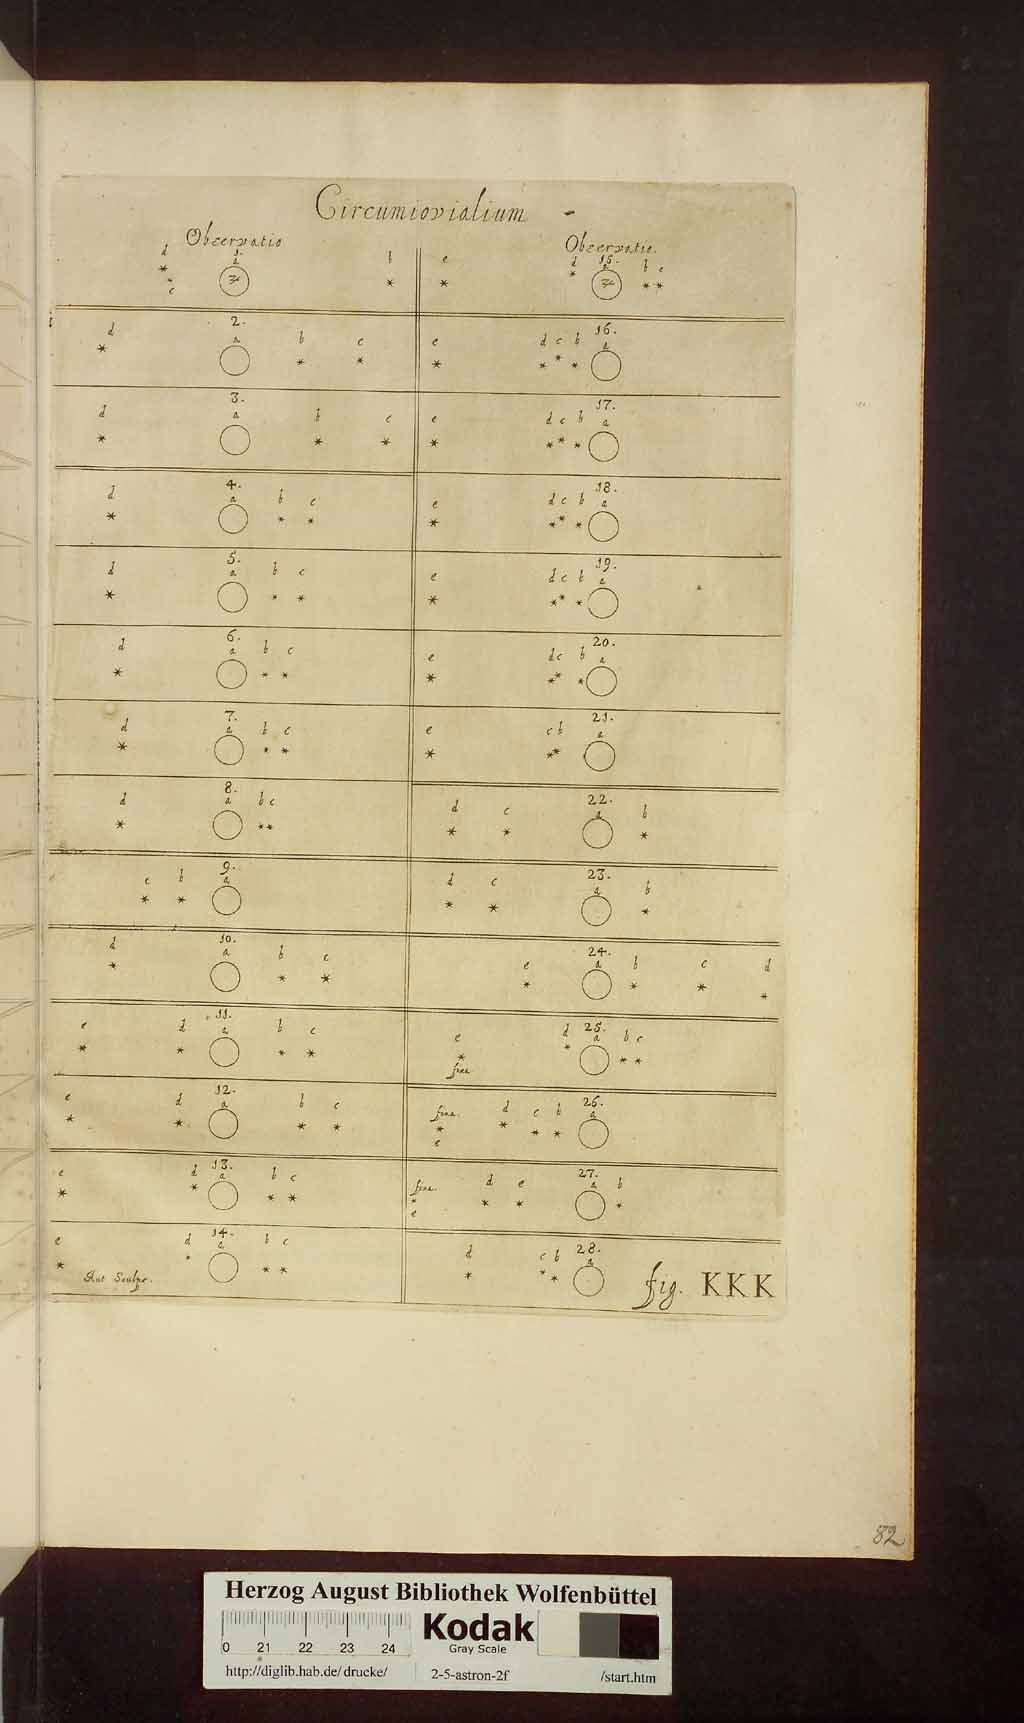 Circumiovialium
Observatio
1.
d a b
c
2.
d a b c
3.
d a b c
4.
d a b c
5.
d a b c
6.
d a b c
7.
d a b c
8.
d a b c
9.
c b a
10.
d a b c
11.
e d a b c
12.
e d a b c
13.
e d a b c
14.
e d a b c
Aut Sculps.
Observatio.
15.
e d a b c
16.
e d c b a
17.
e d c b a
18.
e d c b a
19.
e d c b a
20.
e d c b a
21.
e c b a
22.
d c a b
23.
d c a b
24.
e a b c d
25.
e d a b c
fixa
26.
fixa. d c b a
e
27.
fixa. d e a b
e
28.
d c b a
fig. KKK
82
Herzog August Bibliothek Wolfenbüttel
0 21 22 23 24
Kodak
Gray Scale
http://diglib.hab.de/drucke/ 2-5-astron-2f /start.htm